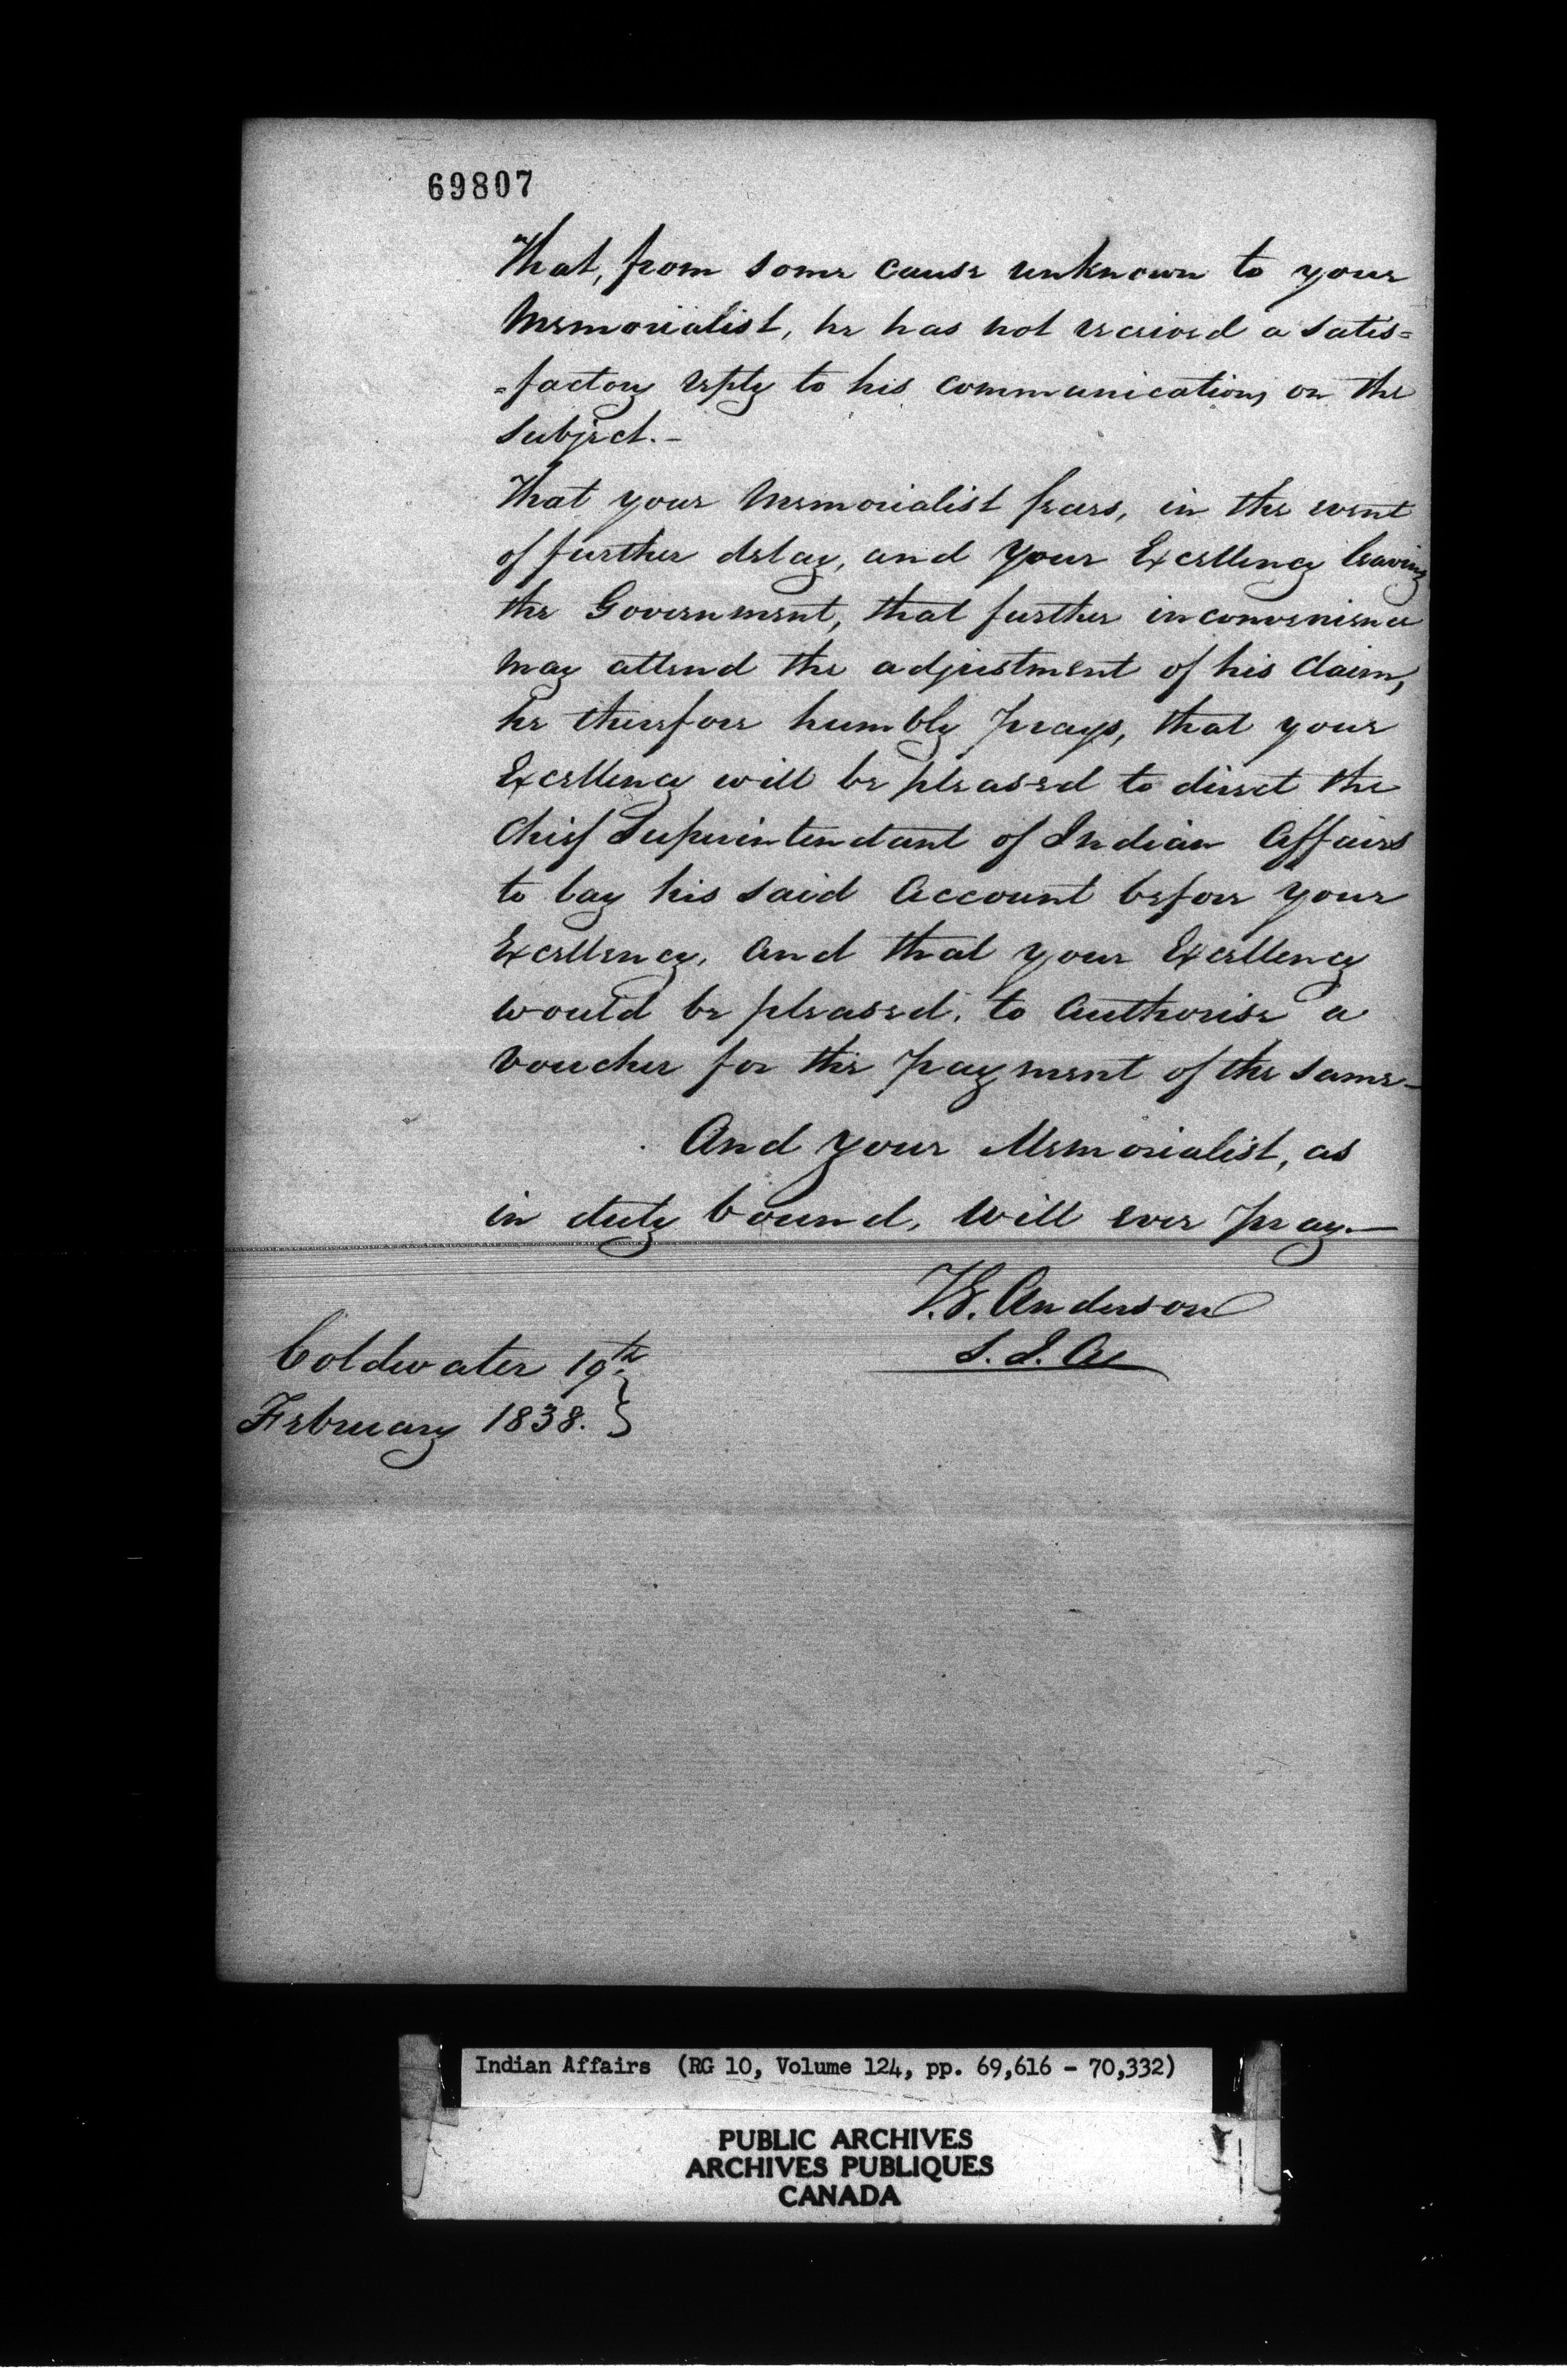 69807
That, from some cause unknown to your
Memorialist, he has not received a satis=
=factory reply to his communications on the
subject.-
That your Memorialist fears, in the event
of further delay, and your Excellency leaving
the Government, that further inconvenience
may attend the adjustment of his Claim,
he therefore humbly prays, that your
Excellency will be pleased to direct the
Chief Superintendant of Indian Affairs
to lay his said Account before your
Excellency, and that your Excellency
would be pleased, to Authorise a
Voucher for the payment of the same-
And your Memorialist, as
in duty bound, will ever pray.-
T.G. Anderson
S.I.A
Coldwater 19th
February 1838. }
Indian Affairs (RG 10, Volume 124, pp. 69,616 - 70,332)
PUBLIC ARCHIVES
ARCHIVES PUBLIQUES
CANADA